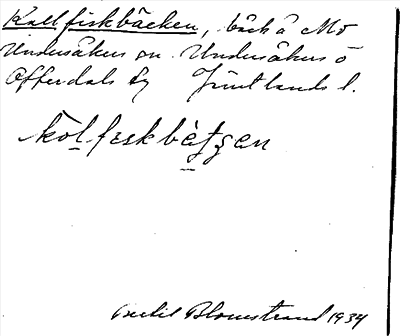 Kallfiskbäcken, bäck å Mo
Undersåkers sn. Undersåkers o
Offerdals tg Jämtlands l.
kolfɪskbètʒen
Bertil Blomstrand 1934